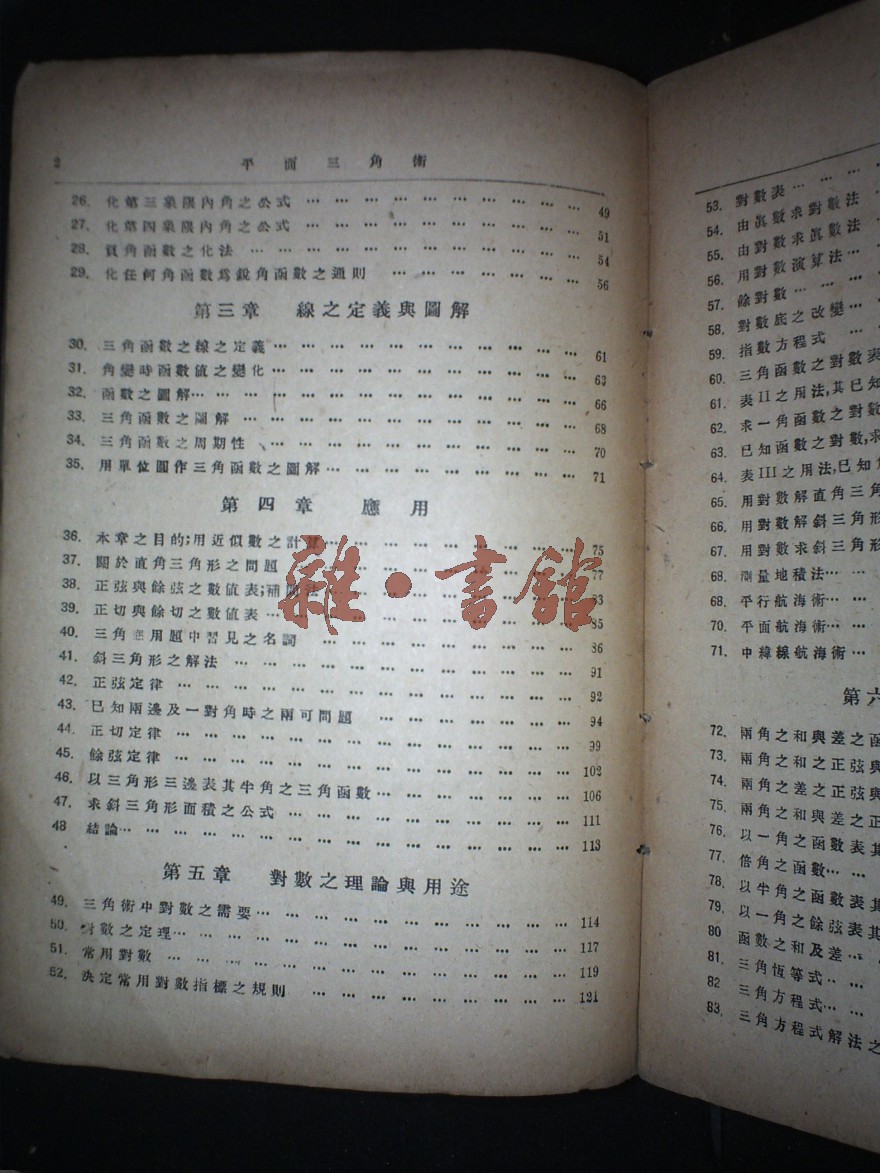 2 平面三角術
26. 化第三象限內角之公式 … … … … … … … … … … 49
27. 化第四象限內角之公式 … … … … … … … … … … 51
28. 負角函數之化法 … … … … … … … … … … … … 54
29. 化任何角函數爲銳角函數之通則 … … … … … … … 56
第三章 線之定義與圖解
30. 三角函數之線之定義… … … … … … … … … … … 61
31. 角變時函數值之變化… … … … … … … … … … … 63
32. 函數之圖解… … … … … … … … … … … … … 66
33. 三角函數之圖解 … … … … … … … … … … … … 68
34. 三角函數之周期性 … … … … … … … … 70
35. 用單位圓作三角函數之圖解… … … … … … … … … 71
第四章 應用
36. 本章之目的;用近似數之計算… … … … … … … … … 75
37. 關於直角三角形之問題 … … … … … … … 77
38. 正弦與餘弦之數值表;補間法… … … … … … … 83
39. 正切與餘切之數值表… … … … … … … … 85
40. 三角應用題中習見之名詞 … … … … … … … 86
41. 斜三角形之解法 … … … … … … … … … … … … 91
42. 正弦定律 … … … … … … … … … … … … … … 92
43. 已知兩邊及一對角時之兩可問題 … … … … … … … 94
44. 正切定律 … … … … … … … … … … … … … … 99
45. 餘弦定律 … … … … … … … … … … … … … … 102
46. 以三角形三邊表其半角之三角函數… … … … … … … 106
47. 求斜三角形面積之公式 … … … … … … … … … … 111
48 結論… … … … … … … … … … … … … … … 113
第五章 對數之理論與用途
49. 三角術中對數之需要… … … … … … … … … … … 114
50. 對數之定理… … … … … … … … … … … … … … 117
51. 常用對數 … … … … … … … … … … … … … … 119
52. 決定常用對數指標之規則 … … … … … … … … … 121
53. 對數表… … … …
54. 由眞數求對數法 …
55. 由對數求眞數法 …
56. 用對數演算法… …
57. 餘對數… … … …
58. 對數底之改變… …
59. 指數方程式 … …
60. 三角函數之對數表
61. 表II之用法,其已知
62. 求一角函數之對數
63. 已知函數之對數,求
64. 表III之用法,已知
65. 用對數解直角三角
66. 用對數解斜三角形
67. 用對數求斜三角形
68. 測量地積法… …
68. 平行航海術… …
70. 平面航海術… …
71. 中緯線航海術…
第六
72. 兩角之和與差之函
73. 兩角之和之正弦與
74. 兩角之差之正弦與
75. 兩角之和與差之正
76. 以一角之函數表其
77. 倍角之函數… …
78. 以半角之函數表其
79. 以一角之餘弦表其
80 函數之和及差… …
81. 三角恆等式… …
82 三角方程式… …
83. 三角方程式解法之
雜·書館